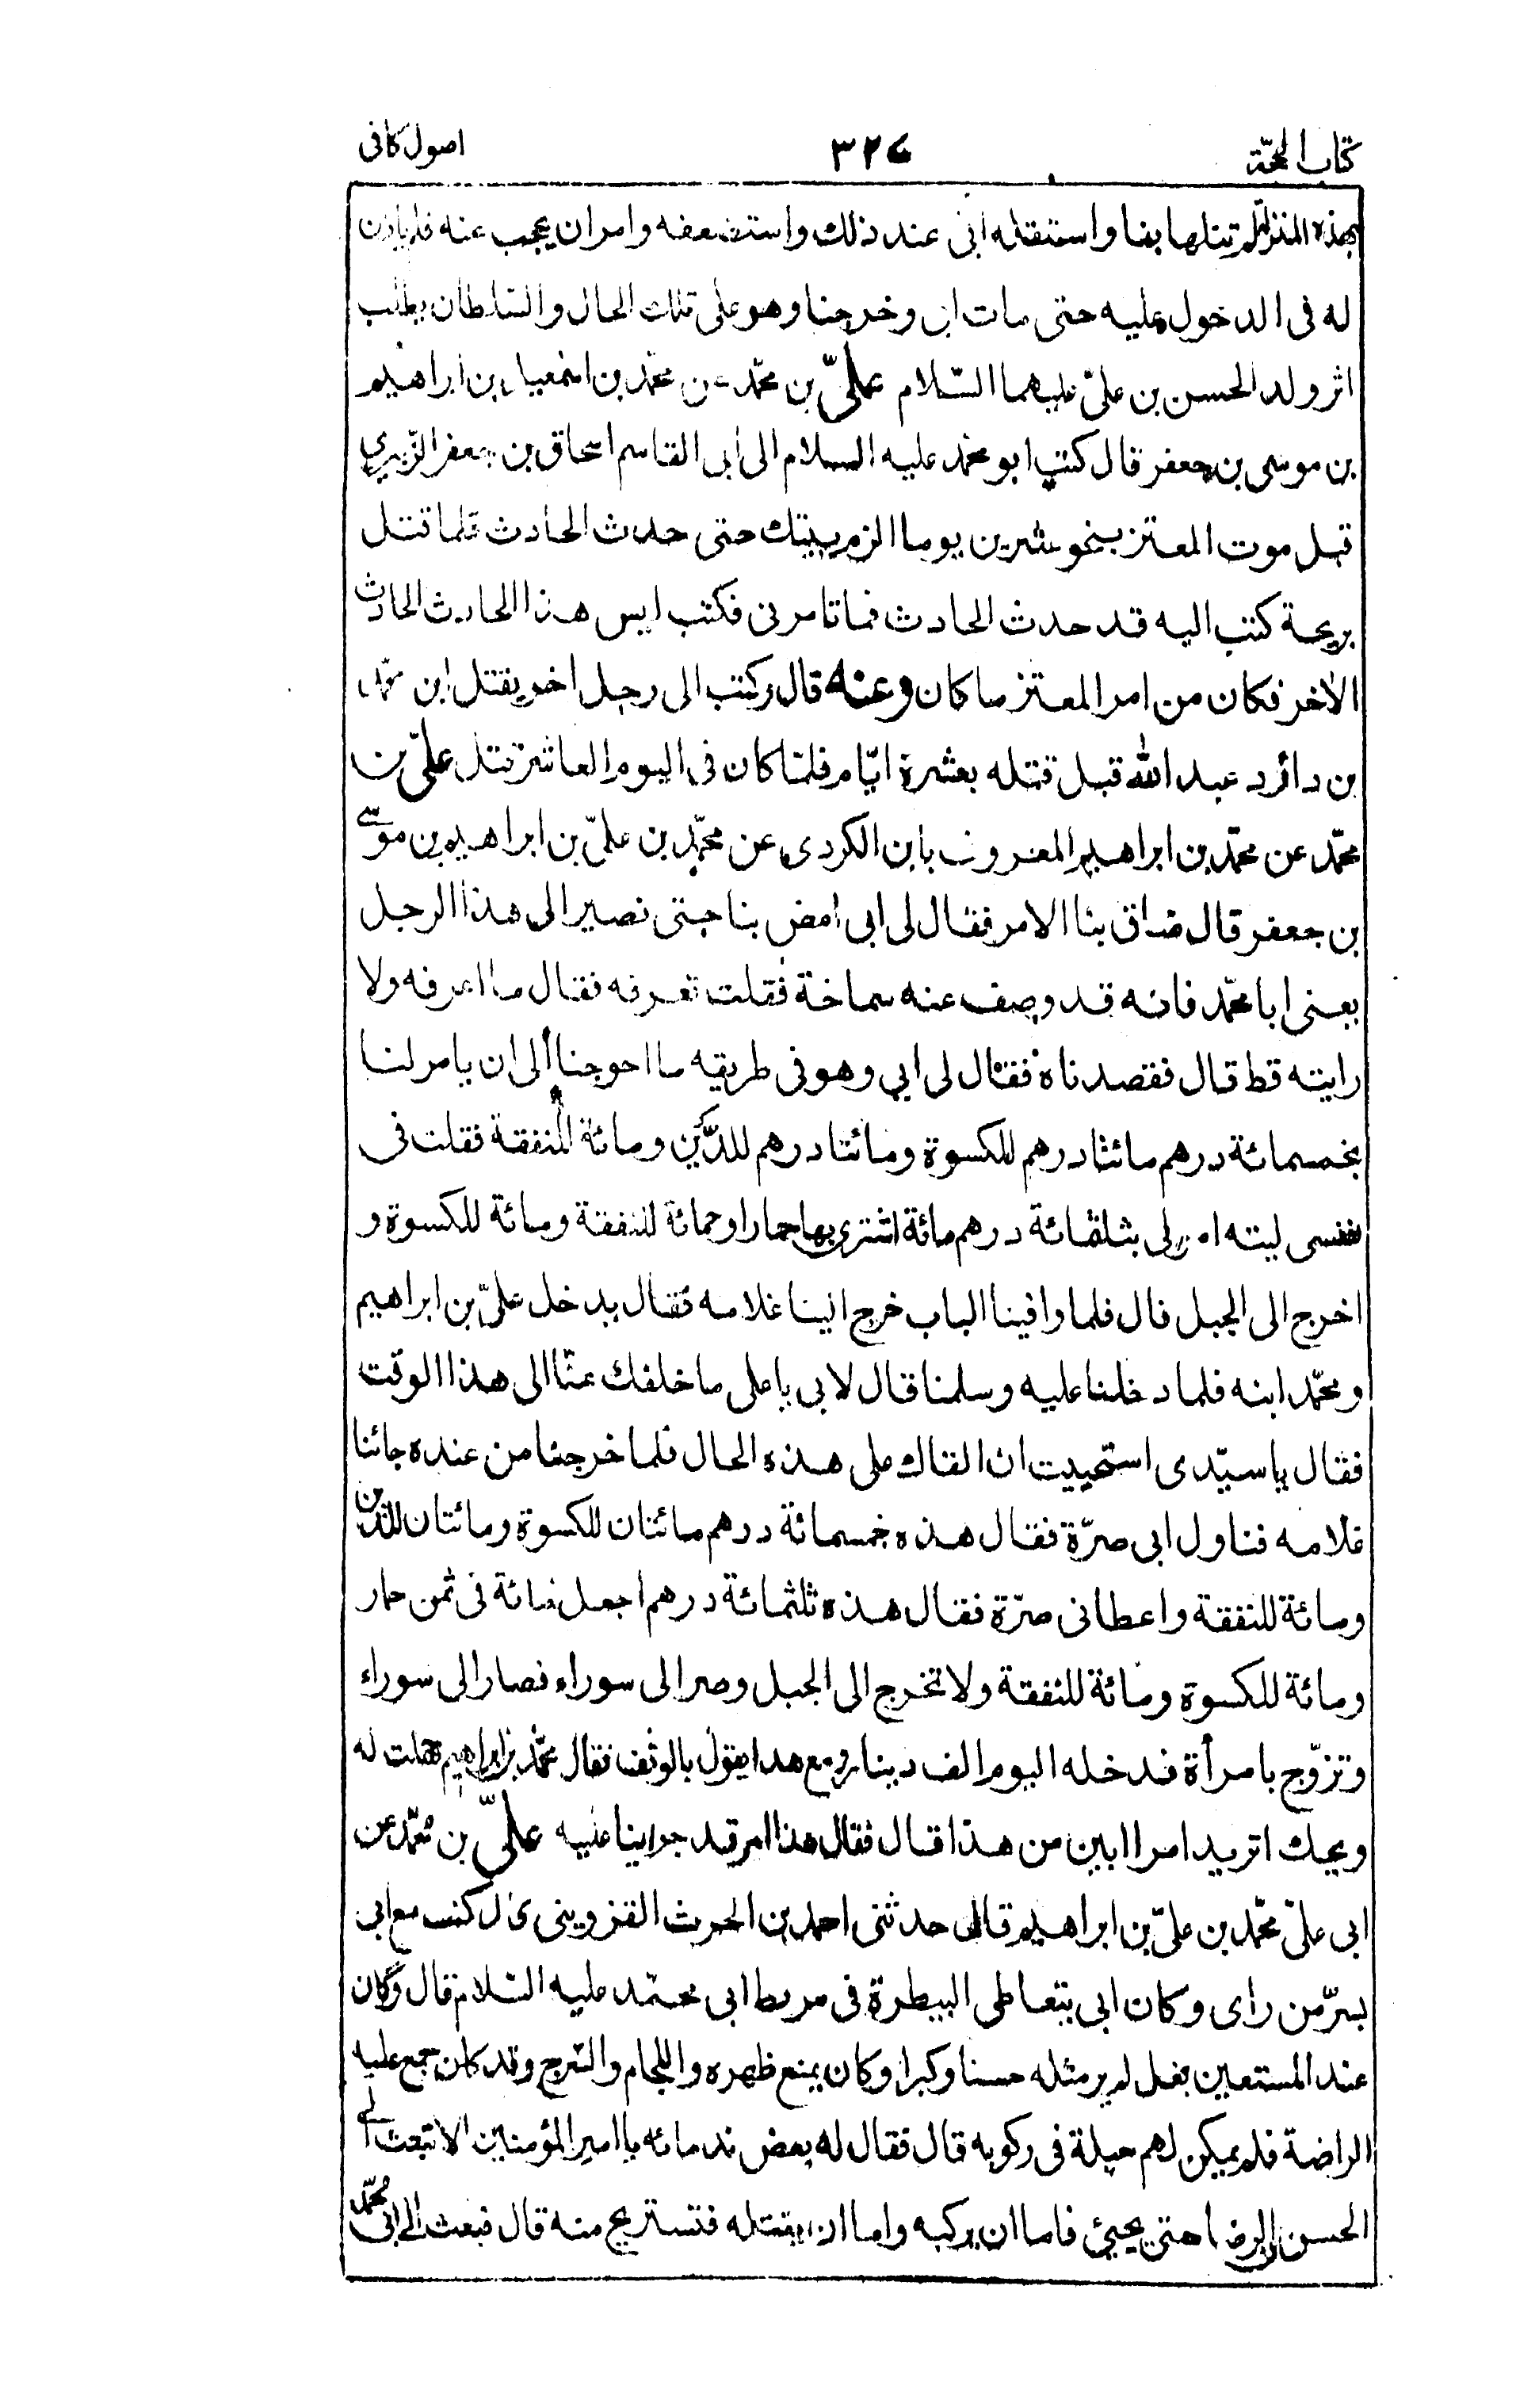 كتاب الحجّة ٣٢٧ اصول كافى
بهذه المنزلة لم تنلها بفا واستنقله ابى عند ذلك واستضعفه وامر ان يحجب عنه فلم ياذن
له فى الدخول عليه حتى مات ابى وخرجنا وهو على تلك الحال والسّلطان يطلب
اثر ولد الحسن بن علىّ عليهما السّلام علىّ بن محمّد عن محمّد بن اسمعيل بن ابراهيم
بن موسى بن جعفر قال كتب ابو محمد عليه السلام الى ابى القاسم اسحاق بن جعفر الزّبيرى
قبل موت المعتز بنحو عشرين يوما الزم بيتك حتى حدث الحادث فلما قتل
بريحة كتب اليه قد حدث الحادث فما تامرنى فكتب ليس هذا الحادث الحادث
الاخر فكان من امر المعتز ما كان وعنه قال وكتب الى رجل اخر يقتل ابن محمّد
بن دائود عبد الله قبل قتله بعشرة ايّام فلمّا كان فى اليوم العاشر قتل علىّ بن
محمّد عن محمّد بن ابراهيم المعروف بابن الكردى عن محمّد بن علىّ بن ابراهيم بن موسى
بن جعفر قال ضاق بنا الامر فقال لى ابى امض بنا حتى نصير الى هذا الرجل
يعنى ابا محمّد فانه قد وصف عنه سماحة فقلت تعرفه فقال ما اعرفه ولا
رايته قط قال فقصدناه فقال لى ابى وهو فى طريقه ما احوجنا الى ان يامر لنا
بخمسمائة درهم مائتا درهم للكسوة ومائتا درهم للدّين ومائة للنفقة فقلت فى
نفسى ليته امر لى بثلثمائة درهم مائة اشترى بها حمارا ومائة للنفقة ومائة للكسوة و
اخرج الى الجبل قال فلما وافينا الباب خرج الينا غلامه فقال يدخل علىّ بن ابراهيم
ومحمّد ابنه فلما دخلنا عليه وسلمنا قال لابى يا على ما خلفك عنّا الى هذا الوقت
فقال يا سيّدى استحييت ان القاك على هذه الحال فلما خرجنا من عنده جائنا
غلامه فناول ابى صرّة فقال هذه خمسمائة درهم مائتان للكسوة ومائتان للدّين
ومائة للنفقة واعطانى صرّة فقال هذه ثلثمائة درهم اجعل مائة فى ثمن حمار
ومائة للكسوة ومائة للنفقة ولا تخرج الى الجبل وصر الى سوراء فصار الى سوراء
وتزوّج بامرأة فدخله اليوم الف دينار ومع هذا يقول بالوقف فقال محمّد بن ابراهيم فقلت له
ويحك اتريد امرا ابين من هذا قال فقال هذا امر قد جرينا عليه علىّ بن محمّد عن
ابى علىّ محمّد بن علىّ بن ابراهيم قال حدثنى احمد بن الحرث القزوينى قال كنت مع ابى
بسرّ من راى وكان ابى يتعاطى البيطرة فى مربط ابى محمّد عليه السّلام قال وكان
عند المستعين بغل لم ير مثله حسنا وكبرا وكان يمنع ظهره واللجام والسّرج وقد كان جمع عليه
الراضة فلم يمكن لهم حيلة فى ركوبه قال فقال له بعض ندمائه يا امير المؤمنين الا تبعث الى
الحسن بن الرضا حتى يجيئ فاما ان يركبه واما ان يقتله فتستريح منه قال فبعث الى ابى محمّد